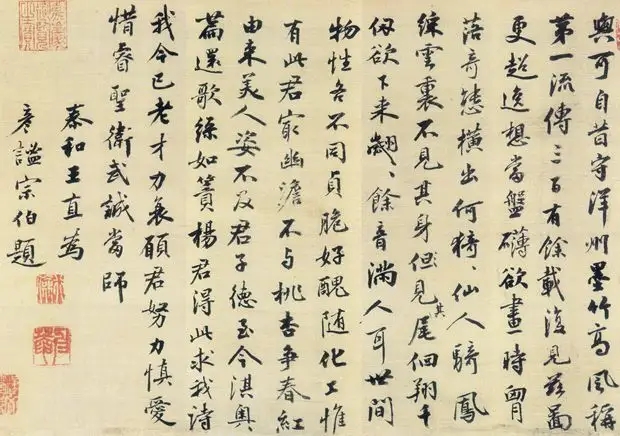 與可自昔守洋州墨竹高風稱
第一流傳三百有餘載復見茲圖
更超逸想當盤礴欲畫時胷
落奇態橫出何猗〻仙人騎鳳
綵雲裏不見其身但見其尾佪翔千
仭欲下来翽〻餘音滿人耳世間
物性各不同貞脆好醜隨化工惟
有此君㝡幽澹不与桃杏爭春紅
由来美人姿不及君子德至今淇奧
篇還歌綠如簀楊君得此求我詩
我今已老才力衰願君努力慎愛
惜睿聖衛武誠當師
泰和王直為
彥謐宗伯題